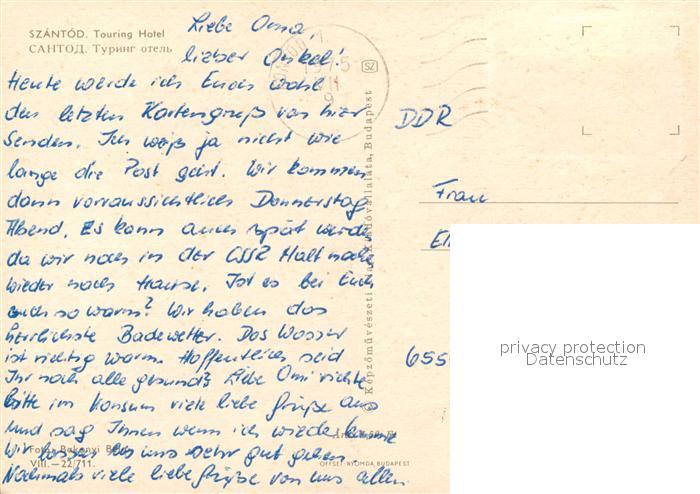 SZÁNTÓD. Touring Hotel
САНТОД. Туринг отель
Liebe Oma,
lieber Onkel!
Heute werde ich Euch wohl
den letzten Kartengruß von hier
senden. Ich weiß ja nicht wie
lange die Post geht. Wir kommen
dann vorraussichtlich Donnerstag
Abend. Es kann auch spät werden
da wir noch in der CSSR Halt machen
wieder nach Hause. Ist es bei Euch
auch so warm? Wir haben das
herrlichste Badewetter. Das Wasser
ist richtig warm. Hoffentlich seid
Ihr noch alle gesund? Liebe Omi richte
bitte im Konsum viele liebe Grüße aus
und sag Ihnen wenn ich wieder komme
Wir lassen es uns sehr gut gehen.
Nochmals viele liebe Grüße von uns allen.
Foto: Bakonyi Béla
VIII.—22/711.
SZ
Képzőművészeti Alap Kiadóvállalata, Budapest
OFFSET-NYOMDA, BUDAPEST
DDR
Frau
655
privacy protection
Datenschutz